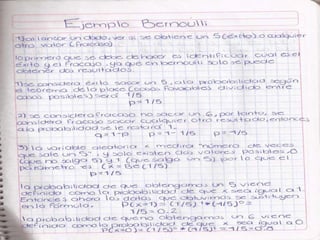 Ejemplo Bernoulli
Al lanzar un dado, ver si se obtiene un 5 (éxito) o cualquier
otro valor (fracaso)
lo primero que se debe de hacer es identificar cual es el
éxito y el fracaso, ya que en bernoulli solo se puede
obtener dos resultados.
1) se considera éxito sacar un 5, a la probabilidad según
el teorema de la place (casos favorables dividido entre
casos posibles) será 1/5
p = 1/5
2) se considera fracaso no sacar un 6, por lo tanto, se
considera fracaso sacar cualquier otro resultado, entonces,
a la probabilidad se le restara 1.
q = 1-p p = 1- 1/5 p = 4/5
3) la variable aleatoria x medirá "número de veces
que sale un 5", y solo existen dos valores posibles, 0
(que no salga 5) y 1 (que salga un 5), por lo que el
parámetro es (x = Be(1/5)
p=1/5
la probabilidad de que obtengamos un 5 viene
definida como la probabilidad de que x sea igual a 1.
Entonces ahora los datos que obtuvimos se sustituyen
en la fórmula. P(x=1) = (1/5)¹ * (4/5)⁰ =
1/5 = 0.2
la probabilidad de que no obtengamos un 6 viene
definida como la probabilidad de que x sea igual a 0
P(x=0) = (1/5)⁰ * (4/5)¹ = 4/5 = 0.8